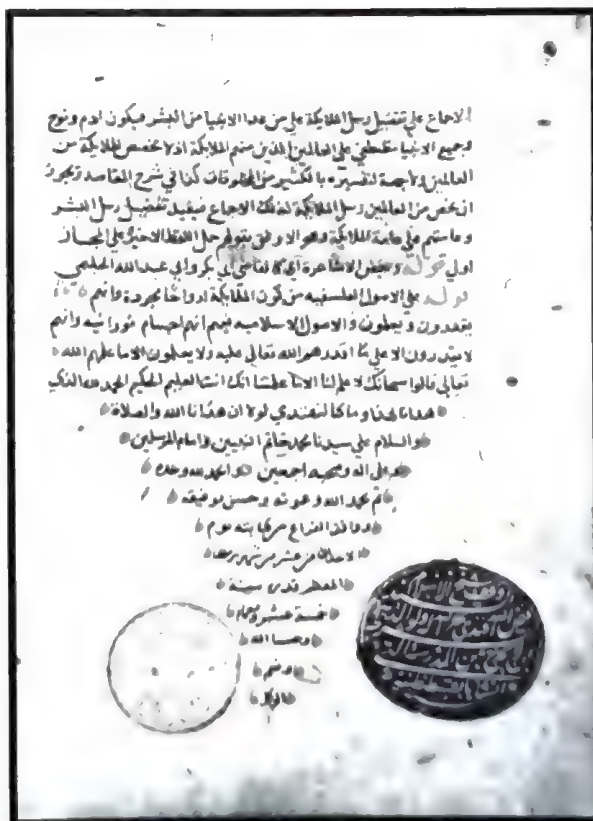 الاجماع على تفضيل رسل الملايكة على من عدا الانبيا من البشر فيكون ادم ونوح
وجميع الانبيا مصطفى على العالمين الذين منهم الملايكة اذ لا مخصص للملايكة من
العالمين ولا جهة لتفسيره بالكثير من المخلوقات كذا في شرح المقاصد وتجويز
ان يخص من العالمين رسل الملايكة لذلك الاجماع فيفيد تفضيل رسل البشر
وعامتهم على عامة الملايكة وهو الاوفق بقولهم حمل اللفظ الاخير على المجاز
اولى قوله وبعض الاشاعرة اي كالقاضي ابي بكر وابي عبد الله الحليمي
قوله على الاصول الفلسفيه من كون الملايكة ارواحا مجردة وانهم
يقدرون ويعلمون والاصول الاسلاميه فيهم انهم اجسام نورانيه وانهم
لا يقدرون الا على ما اقدرهم الله تعالى عليه ولا يعلمون الا ما علمهم الله
تعالى قالوا سبحانك لا علم لنا الا ما علمتنا انك انت العليم الحكيم الحمد لله الذي
هدانا لهذا وما كنا لنهتدي لولا ان هدانا الله والصلاة
والسلام على سيدنا محمد خاتم النبيين وامام المرسلين
وعلى اله وصحبه اجمعين والحمد لله وحده
تم بحمد الله وعونه وحسن توفيقه
وكان الفراغ من كتابته يوم
عشر من شهر
سنة
خمسة عشر
وحسبنا الله
ونعم
الوكيل